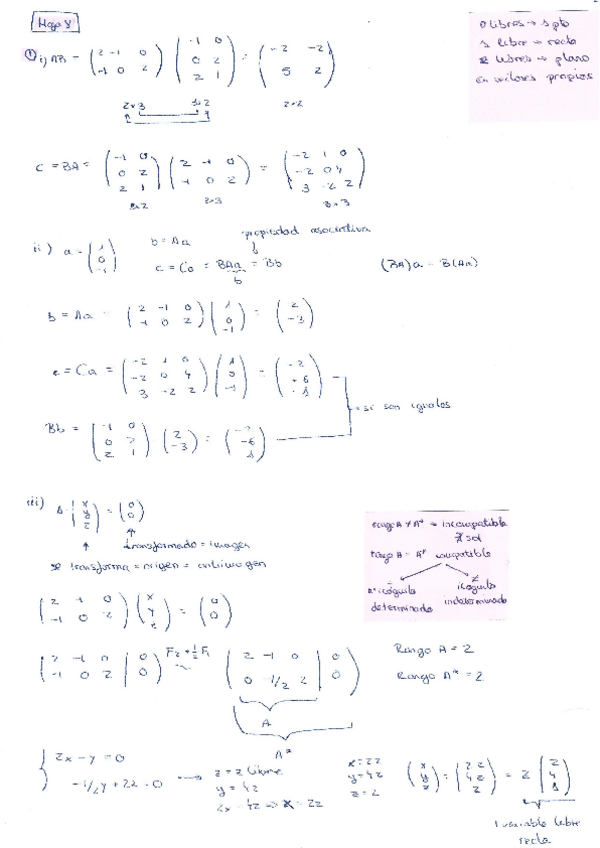 Hoja 8
0 libres → 1 pto
1 libre → recta
2 libres → plano
en valores propios
① i) AB = (2 -1 0 / -1 0 2) (-1 0 / 0 2 / 2 1) = (-2 -2 / 5 2)
2x3 3x2 2x2
C = BA = (-1 0 / 0 2 / 2 1) (2 -1 0 / -1 0 2) = (-2 1 0 / -2 0 4 / 3 -2 2)
3x2 2x3 3x3
ii) a = (1 / 0 / -1) b = Aa propiedad asociativa
c = Ca = BAa = Bb (BA)a = B(Aa)
b
b = Aa = (2 -1 0 / -1 0 2) (1 / 0 / -1) = (2 / -3)
c = Ca = (-2 1 0 / -2 0 4 / 3 -2 2) (1 / 0 / -1) = (-2 / -6 / 1)
sí son iguales
Bb = (-1 0 / 0 2 / 2 1) (2 / -3) = (-2 / -6 / 1)
iii) A · (x / y / z) = (0 / 0)
transformado = imagen
se transforma = origen = antiimagen
rango A ≠ A* = incompatible
∄ sol
rango A = A* compatible
nº incógnita
determinado
≠ incógnita
indeterminado
(2 -1 0 / -1 0 2) (x / y / z) = (0 / 0)
(2 -1 0 | 0 / -1 0 2 | 0) F2 + 1/2 F1 (2 -1 0 | 0 / 0 -1/2 2 | 0)
Rango A = 2
Rango A* = 2
A
A*
{ 2x - y = 0
-1/2y + 2z = 0
z = z libre
y = 4z
2x = 4z => x = 2z
x = 2z
y = 4z
z = z
(x / y / z) = (2z / 4z / z) = z (2 / 4 / 1)
1 variable libre
recta